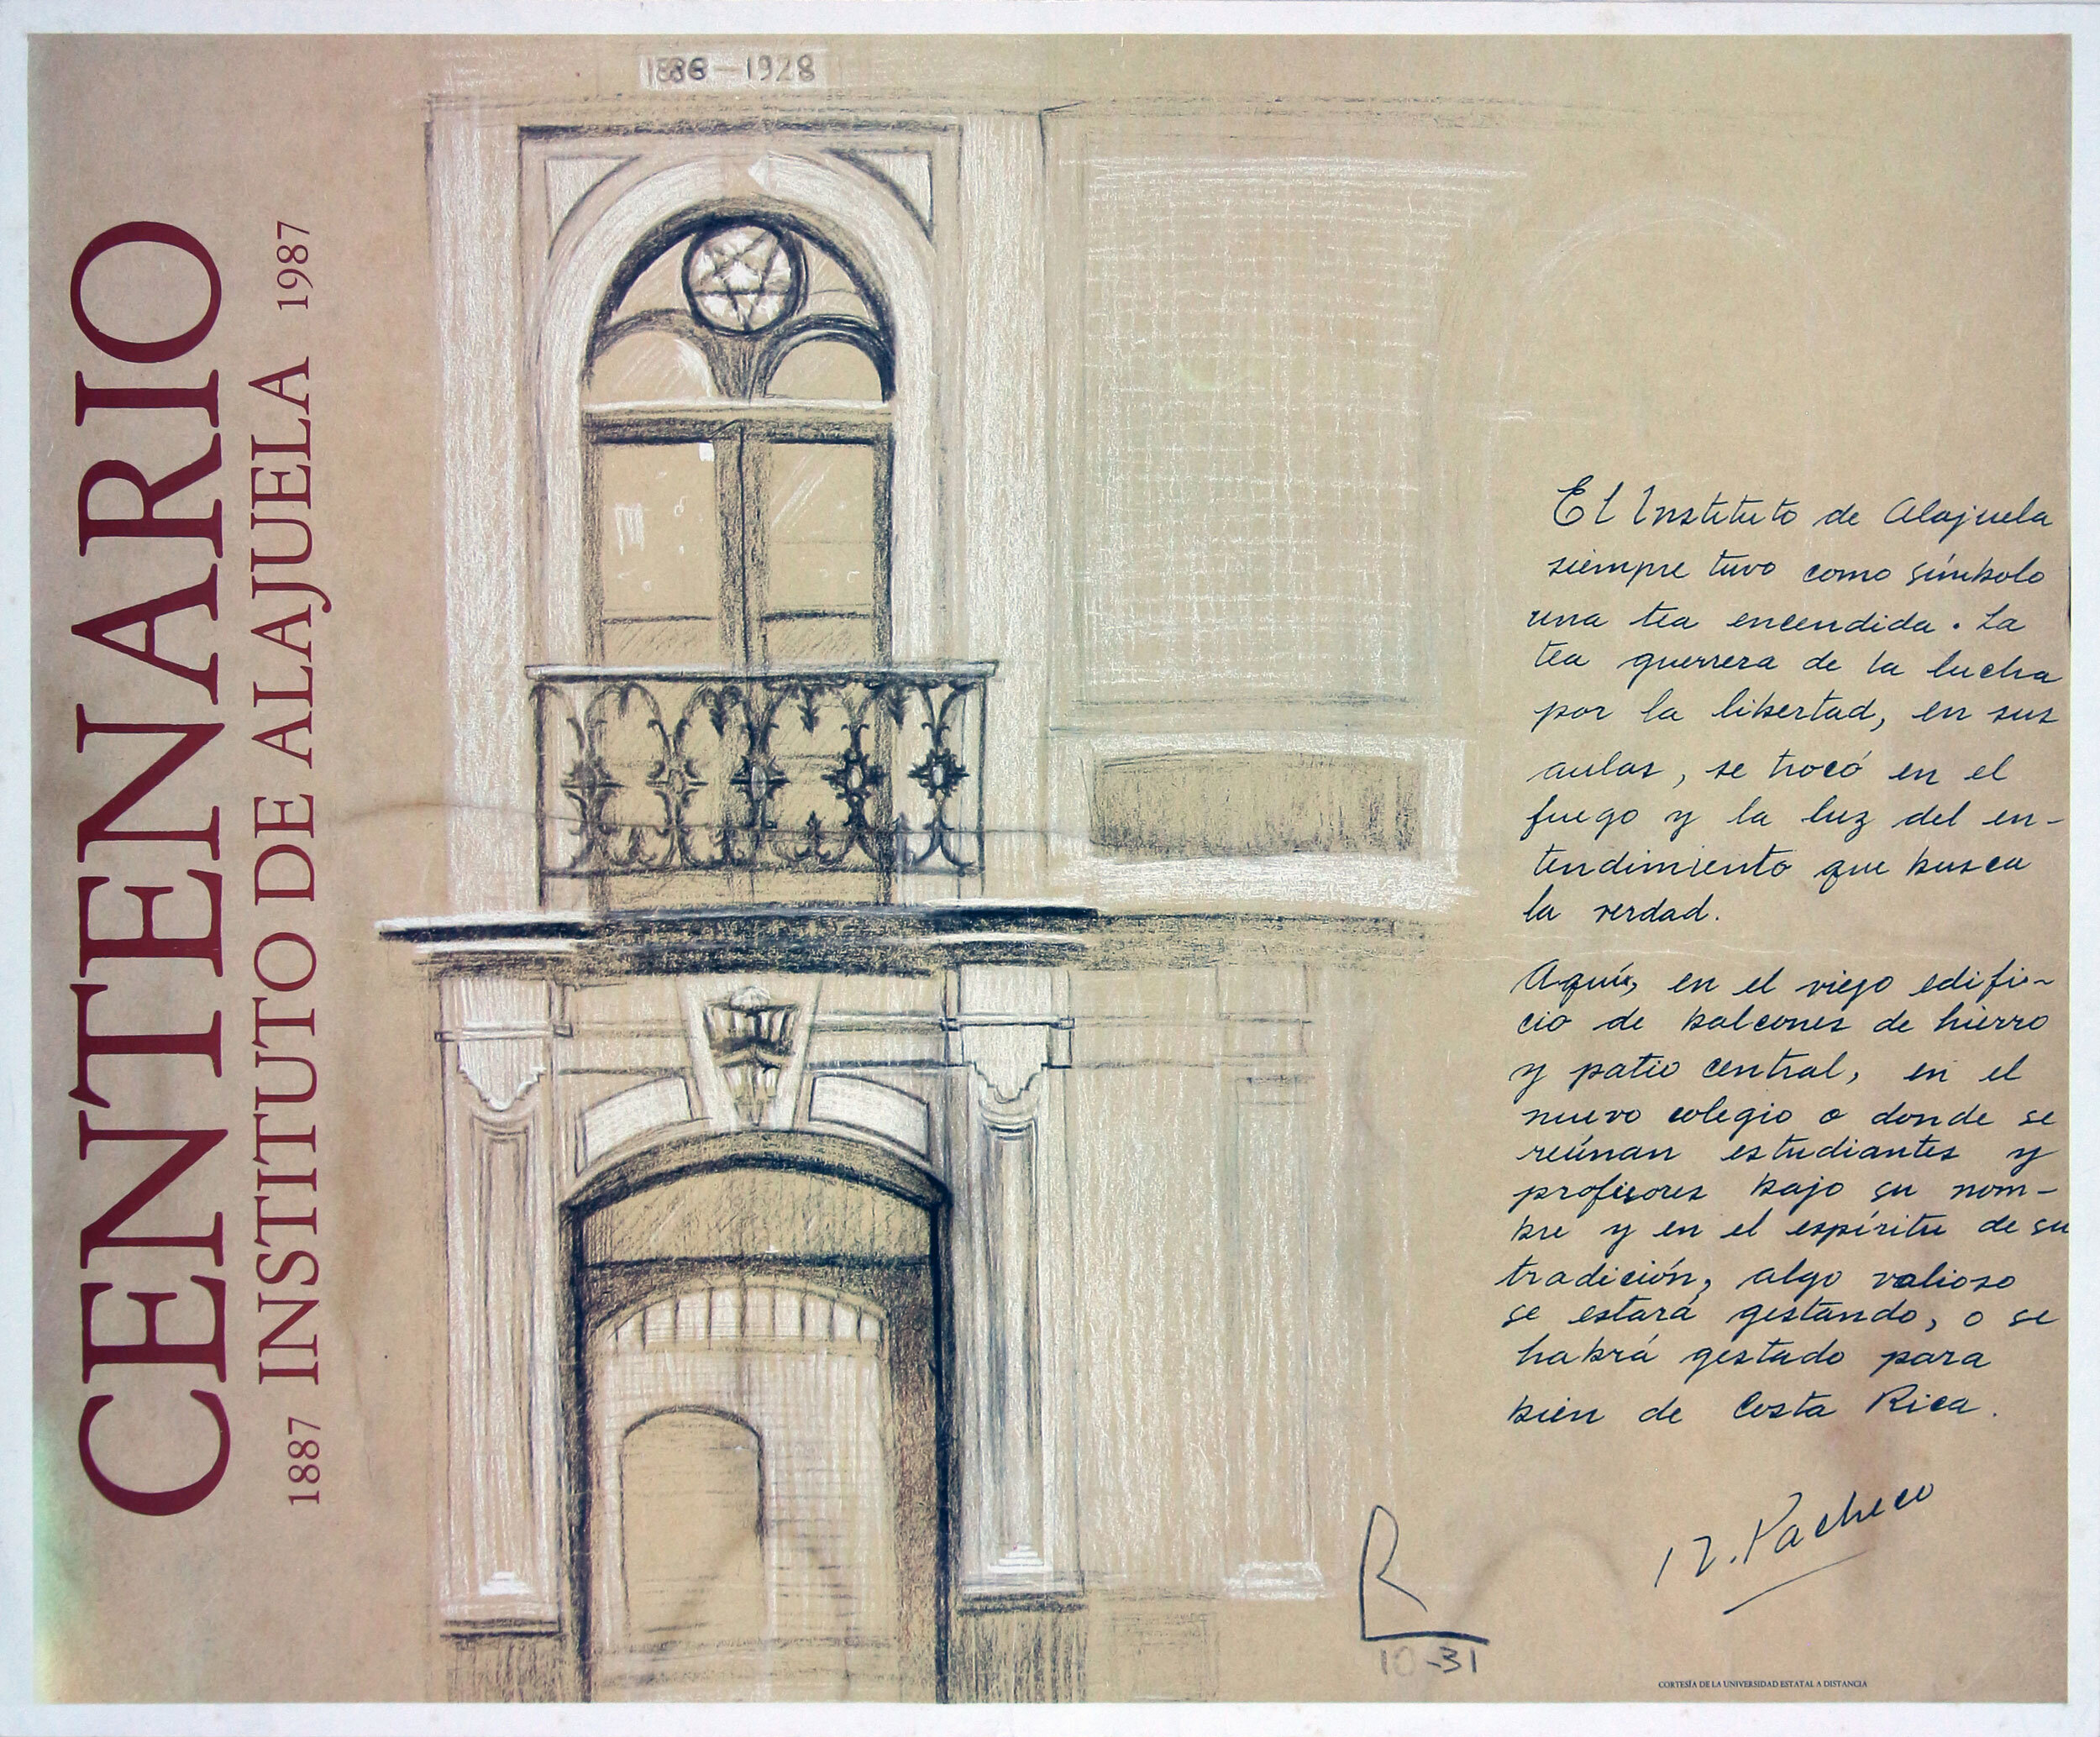 CENTENARIO
1887 INSTITUTO DE ALAJUELA 1987
1886-1928
El Instituto de Alajuela
siempre tuvo como símbolo
una tea encendida. La
tea guerrera de la lucha
por la libertad, en sus
aulas, se trocó en el
fuego y la luz del en-
tendimiento que busca
la verdad.
Aquí, en el viejo edifi-
cio de balcones de hierro
y patio central, en el
nuevo colegio o donde se
reúnan estudiantes y
profesores bajo su nom-
bre y en el espíritu de su
tradición, algo valioso
se estará gestando, o se
habrá gestado para
bien de Costa Rica.
Pacheco
R
10-31
CORTESÍA DE LA UNIVERSIDAD ESTATAL A DISTANCIA